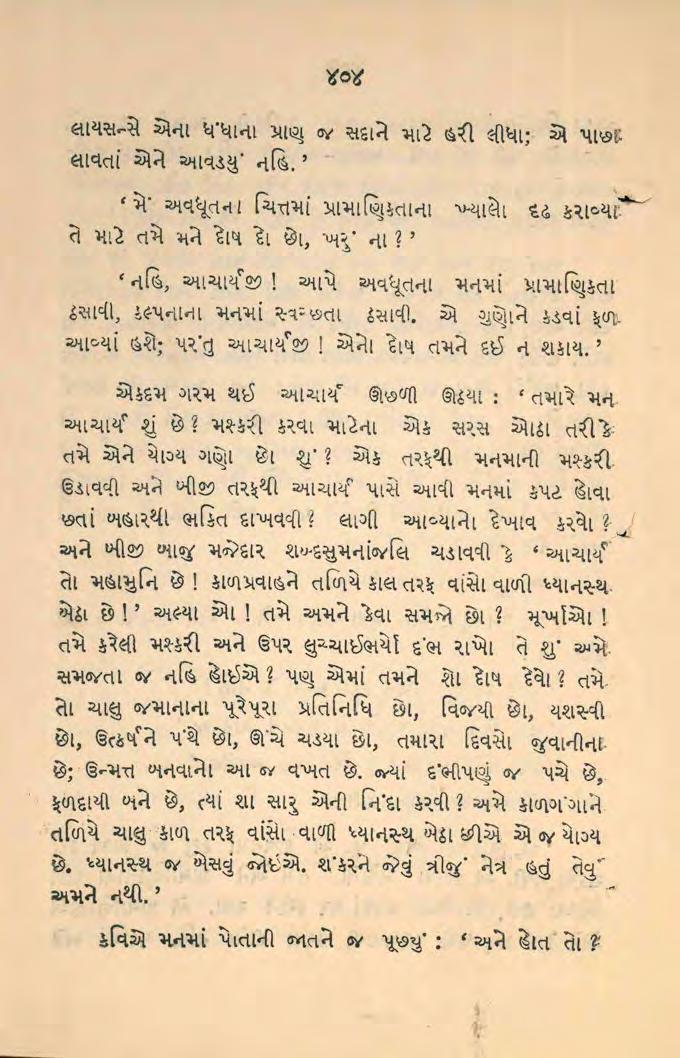 ૪૦૪
લાયસન્સે એના ધંધાના પ્રાણ જ સદાને માટે હરી લીધા; એ પાછા
લાવતાં એને આવડયું નહિ.’
‘મેં અવધૂતના ચિત્તમાં પ્રામાણિકતાના ખ્યાલો દૃઢ કરાવ્યા
તે માટે તમે મને દોષ દો છો, ખરું ના?’
‘નહિ, આચાર્યજી! આપે અવધૂતના મનમાં પ્રામાણિકતા
ઠસાવી, કલ્પનાના મનમાં સ્વચ્છતા ઠસાવી. એ ગુણોને કડવાં ફળ
આવ્યાં હશે; પરંતુ આચાર્યજી! એનો દોષ તમને દઈ ન શકાય.’
એકદમ ગરમ થઈ આચાર્ય ઊછળી ઊઠયા : ‘તમારે મન
આચાર્ય શું છે? મશ્કરી કરવા માટેના એક સરસ ઓઠા તરીકે
તમે એને યોગ્ય ગણો છો શું? એક તરફથી મનમાની મશ્કરી
ઉડાવવી અને બીજી તરફથી આચાર્ય પાસે આવી મનમાં કપટ હોવા
છતાં બહારથી ભક્તિ દાખવવી? લાગી આવ્યાનો દેખાવ કરવો?
અને બીજી બાજુ મજેદાર શબ્દસુમનાંજલિ ચડાવવી કે ‘આચાર્ય
તો મહામુનિ છે! કાળપ્રવાહને તળિયે કાલ તરફ વાંસો વાળી ધ્યાનસ્થ
બેઠા છે!’ અલ્યા ઓ! તમે અમને કેવા સમજો છો? મૂર્ખાઓ!
તમે કરેલી મશ્કરી અને ઉપર લુચ્ચાઈભર્યો દંભ રાખો તે શું અમે
સમજતા જ નહિ હોઈએ? પણ એમાં તમને શો દોષ દેવો? તમે
તો ચાલુ જમાનાના પૂરેપૂરા પ્રતિનિધિ છો, વિજયી છો, યશસ્વી
છો, ઉત્કર્ષને પંથે છો, ઊંચે ચડયા છો, તમારા દિવસો જુવાનીના
છે; ઉન્મત્ત બનવાનો આ જ વખત છે. જ્યાં દંભીપણું જ પચે છે,
ફળદાયી બને છે, ત્યાં શા સારુ એની નિંદા કરવી? અમે કાળગંગાને
તળિયે ચાલુ કાળ તરફ વાંસો વાળી ધ્યાનસ્થ બેઠા છીએ એ જ યોગ્ય
છે. ધ્યાનસ્થ જ બેસવું જોઇએ. શંકરને જેવું ત્રીજું નેત્ર હતું તેવું
અમને નથી.’
કવિએ મનમાં પોતાની જાતને જ પૂછયું : ‘અને હોત તો?